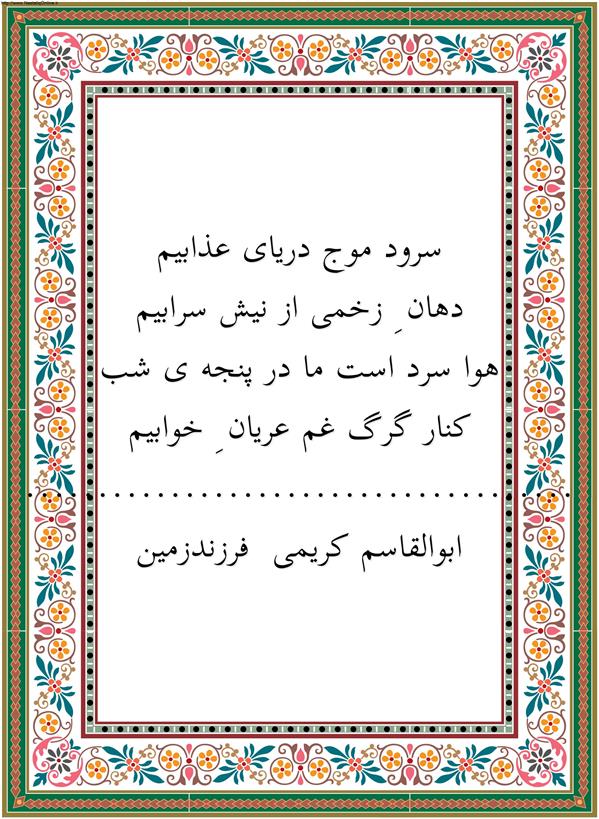 http://www.NastaliqOnline.ir
سرود موج دریای عذابیم
دهان ِ زخمی از نیش سرابیم
هوا سرد است ما در پنجه ی شب
کنار گرگ غم عریان ِ خوابیم
ابوالقاسم کریمی فرزندزمین